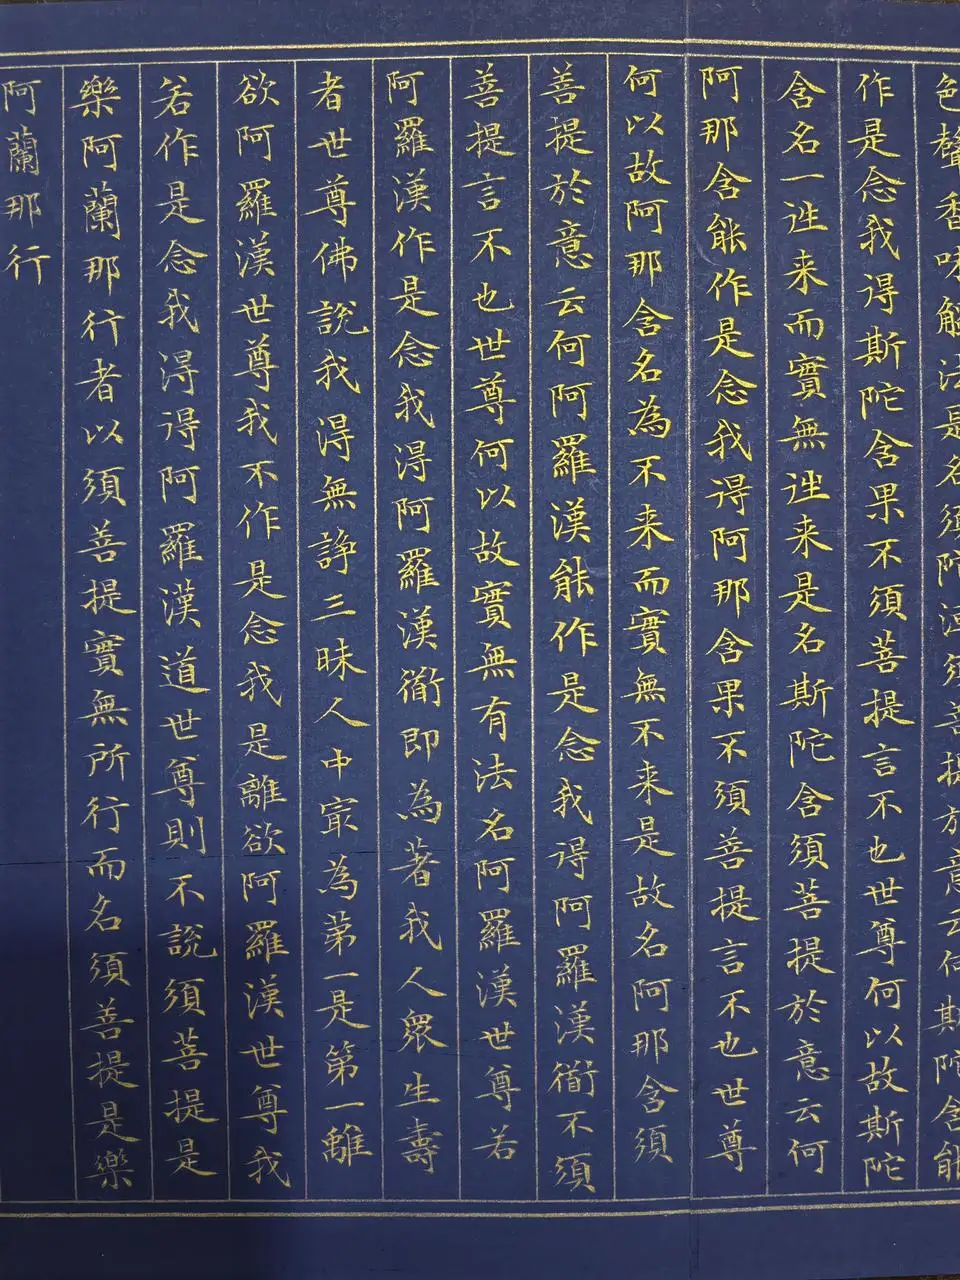 色聲香味觸法是名須陀洹須菩提於意云何斯陀含能
作是念我得斯陀含果不須菩提言不也世尊何以故斯陀
含名一往来而實無往来是名斯陀含須菩提於意云何
阿那含能作是念我得阿那含果不須菩提言不也世尊
何以故阿那含名為不来而實無不来是故名阿那含須
菩提於意云何阿羅漢能作是念我得阿羅漢衜不須
菩提言不也世尊何以故實無有法名阿羅漢世尊若
阿羅漢作是念我得阿羅漢衜即為著我人眾生壽
者世尊佛說我得無諍三昧人中冣為第一是第一離
欲阿羅漢世尊我不作是念我是離欲阿羅漢世尊我
若作是念我得得阿羅漢道世尊則不說須菩提是
樂阿蘭那行者以須菩提實無所行而名須菩提是樂
阿蘭那行